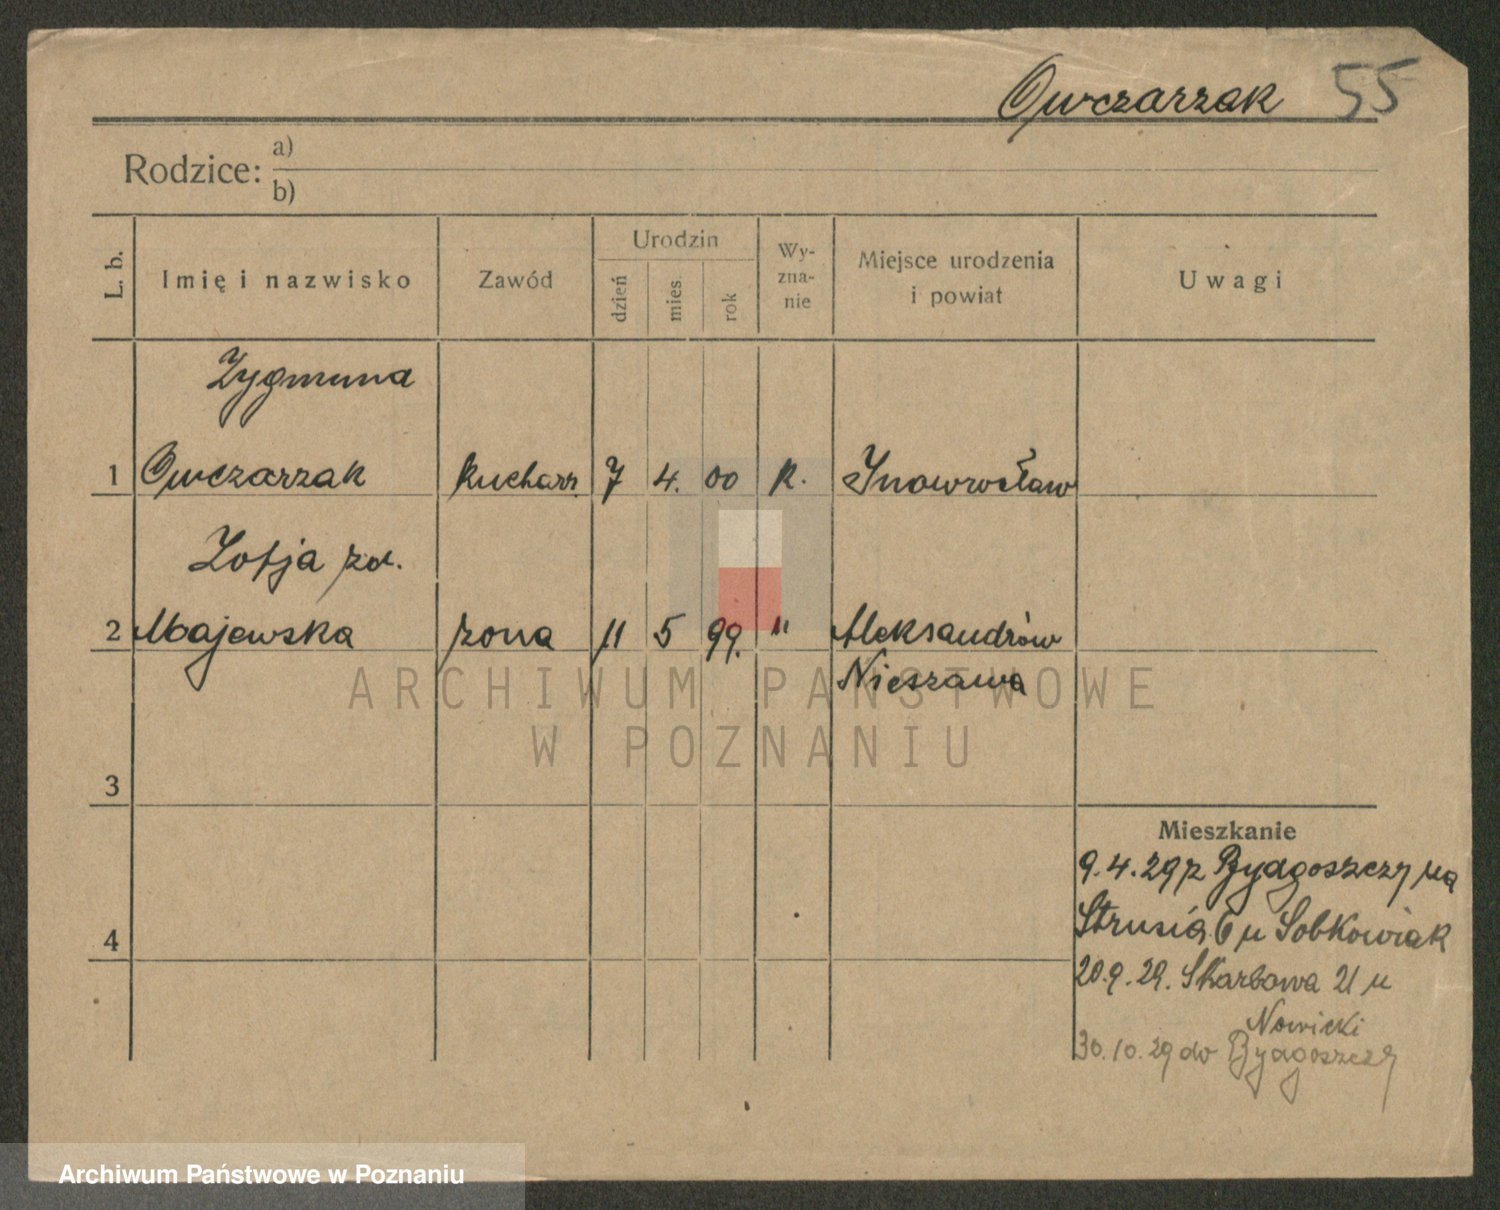 Owczarzak 55
Rodzice: a)
b)
L. b. Imię i nazwisko Zawód Urodzin dzień mies. rok Wy-zna-nie Miejsce urodzenia i powiat Uwagi
Zygmund
1 Owczarzak kucharz 7 4. 00 k. Inowrocław
Zofja zd.
2 Majewska żona 11 5 99. " Aleksandrów
Nieszawa
ARCHIWUM PAŃSTWOWE
W POZNANIU
3
Mieszkanie
9.4.29 z Bydgoszczy na
4 Strusia 6 u Sobkowiak
20.9.29. Skarbowa 21 u
Nowicki
30.10.29 do Bydgoszczy
Archiwum Państwowe w Poznaniu